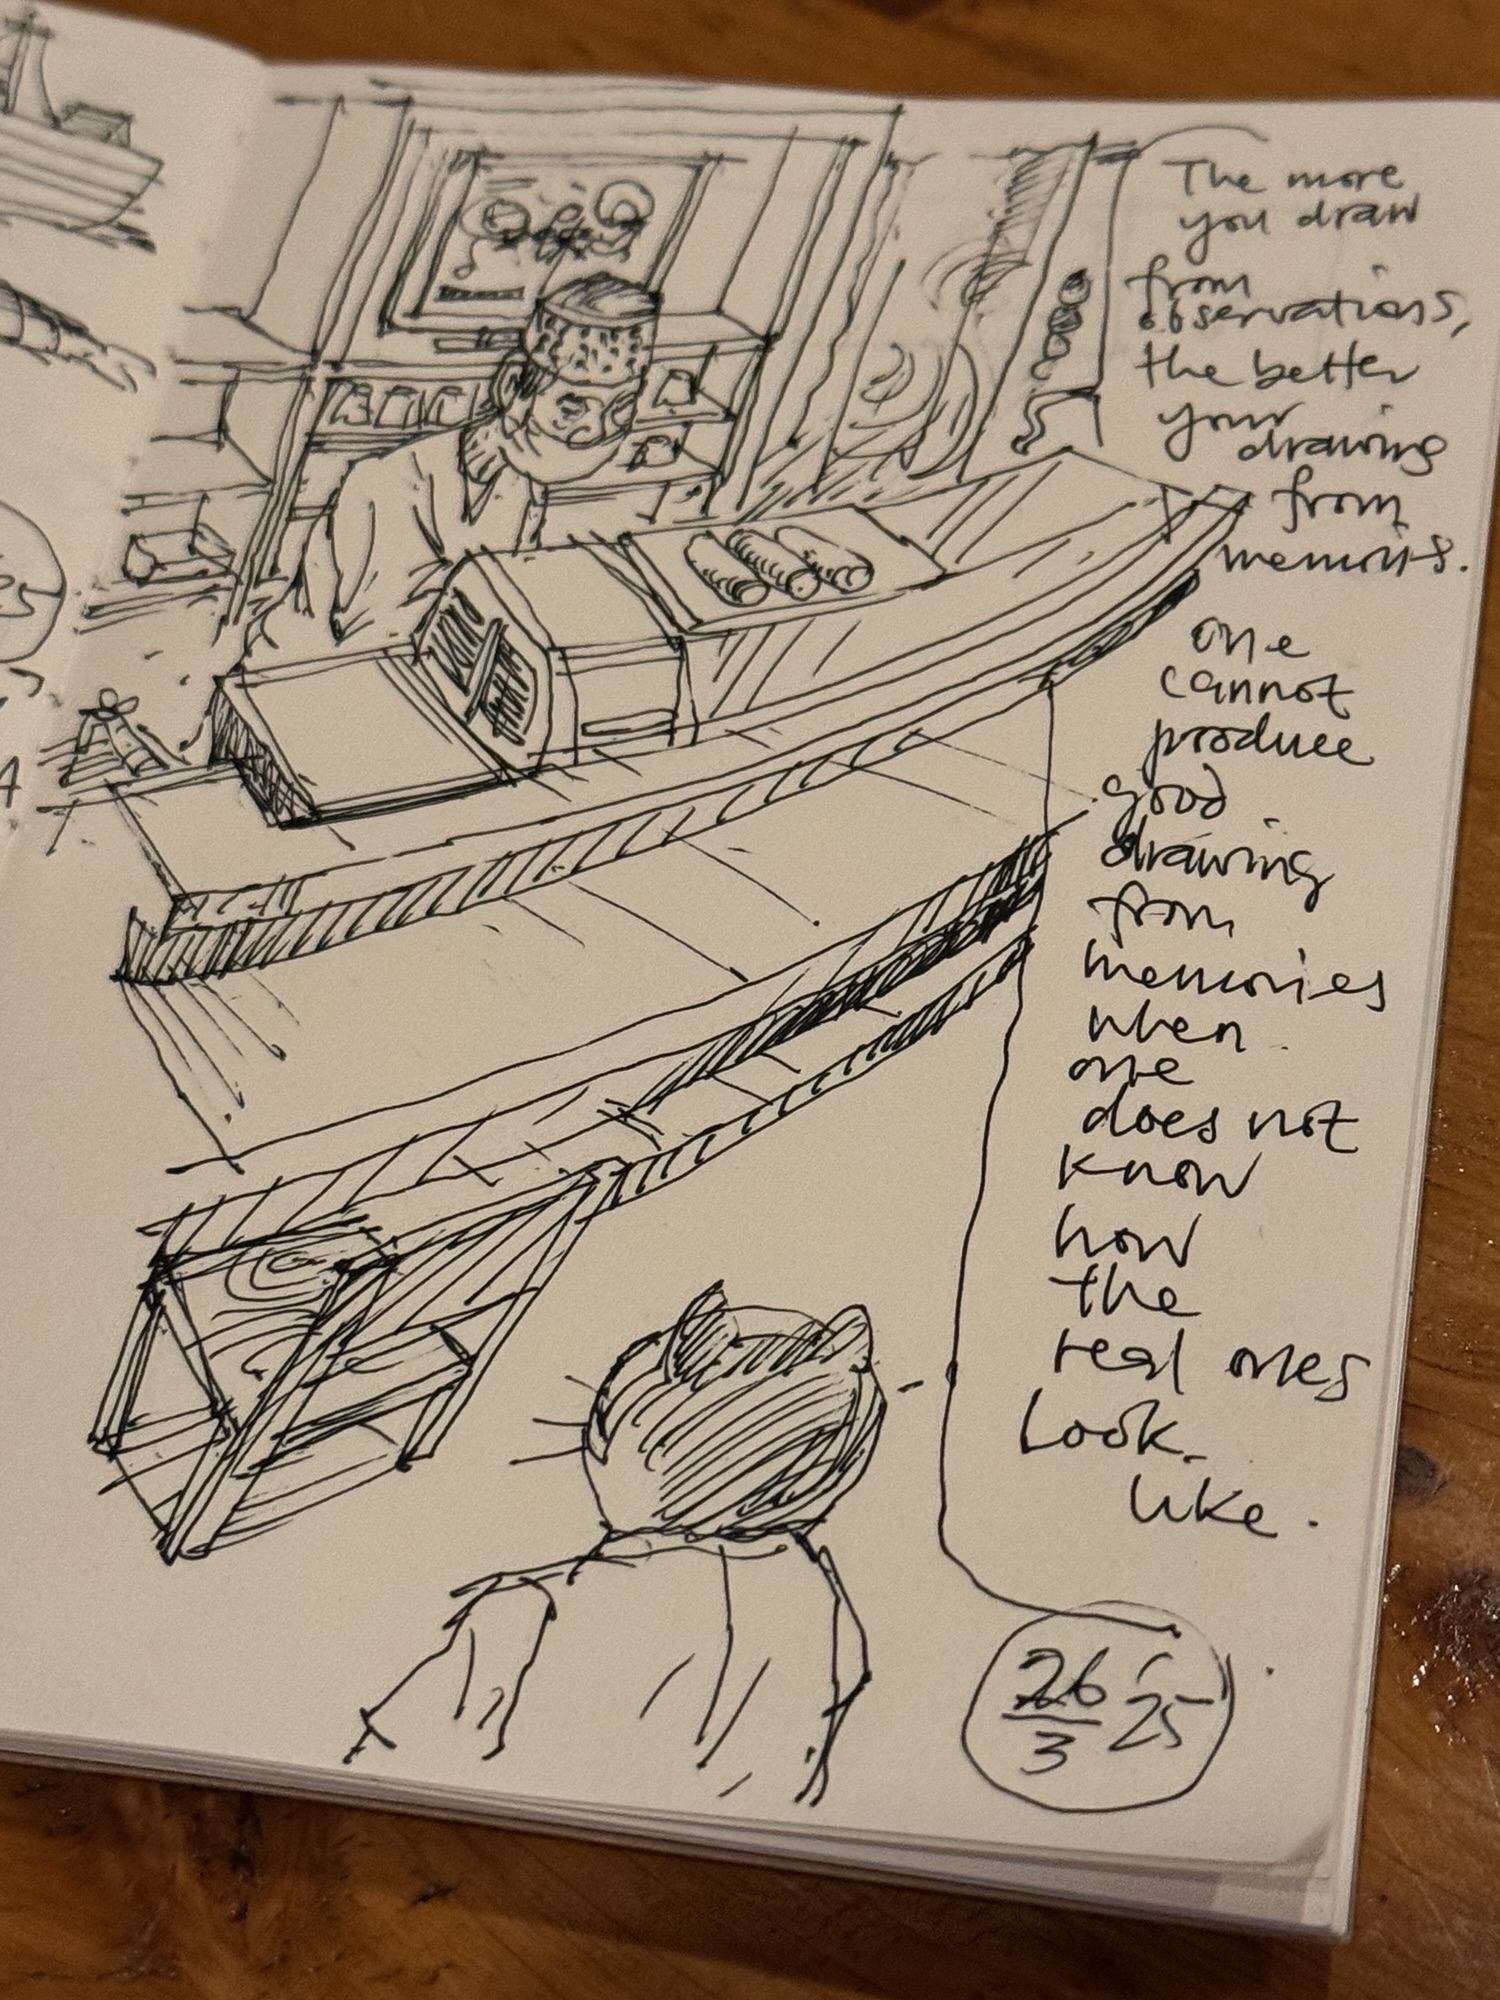 The more
you draw
from
observations,
the better
your
drawing
from
memoris.
one
cannot
produce
good
drawing
from
memories
when
one
does not
know
how
the
real ones
look
like.
26/3 '25